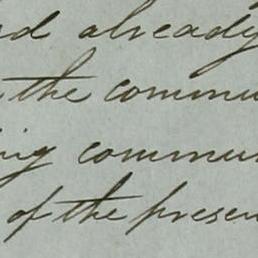 d already
the commu
ing commu
of the presen